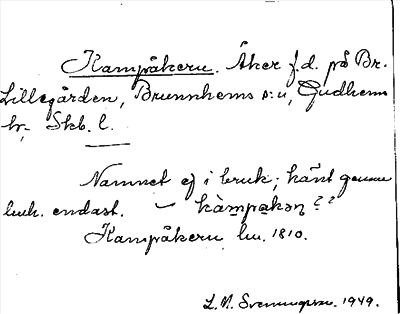 Kampåkern. Åker f.d. på Br.
Lillegården, Brunnhems s:n, Gudhems
hr, Skb. l.
Namnet ej i bruk; känt genom
lmh. endast. – kàmpakən ? ?
Kampåkern lm. 1810.
L. M. Svenungsson. 1949.